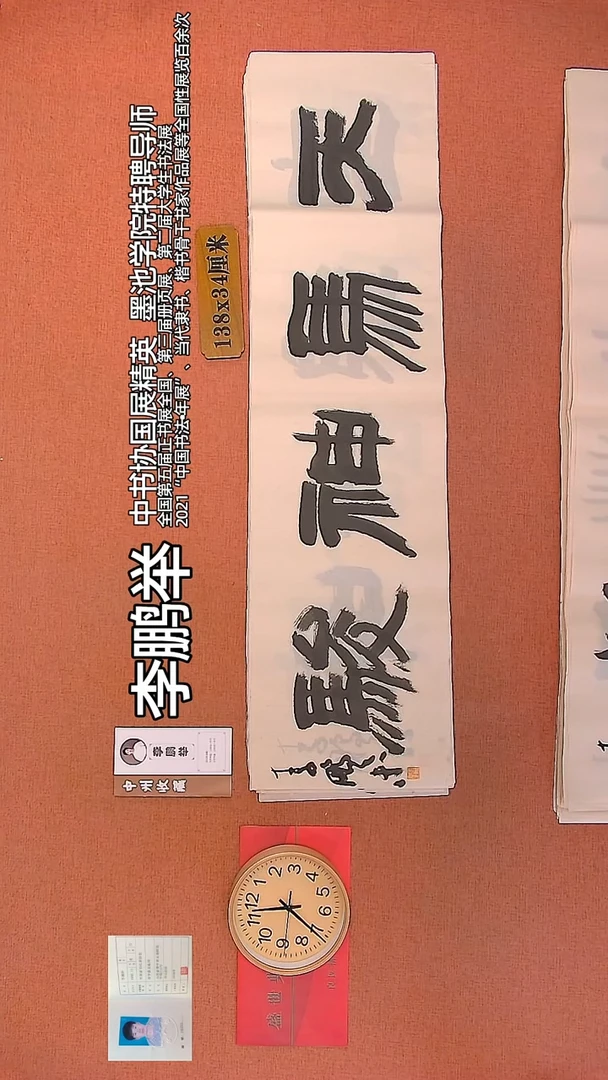 李鹏举
中书协国展精英 墨池学院特聘导师
全国第五届正书展全国、第三届册页展、第二届大学生书法展
2021“中国书法·年展”、当代隶书、楷书骨干书家作品展等全国性展览百余次
138x34厘米
天馬神駿
中州收藏
李鹏举
盛世
12
1
2
3
4
5
6
7
8
9
10
11